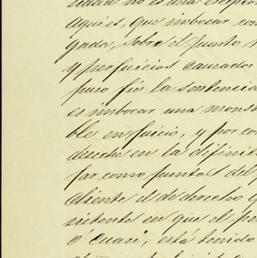 aqui es, que invocar
gada, sobre el punto
y perjuicios causados
puro fio la sentencia
es invocar una mons
ble en juicio, y por co
derecho en la difinit
far como puntos del
aliente el de derecho q
sistente en que el po
ó cuasi, está tenido